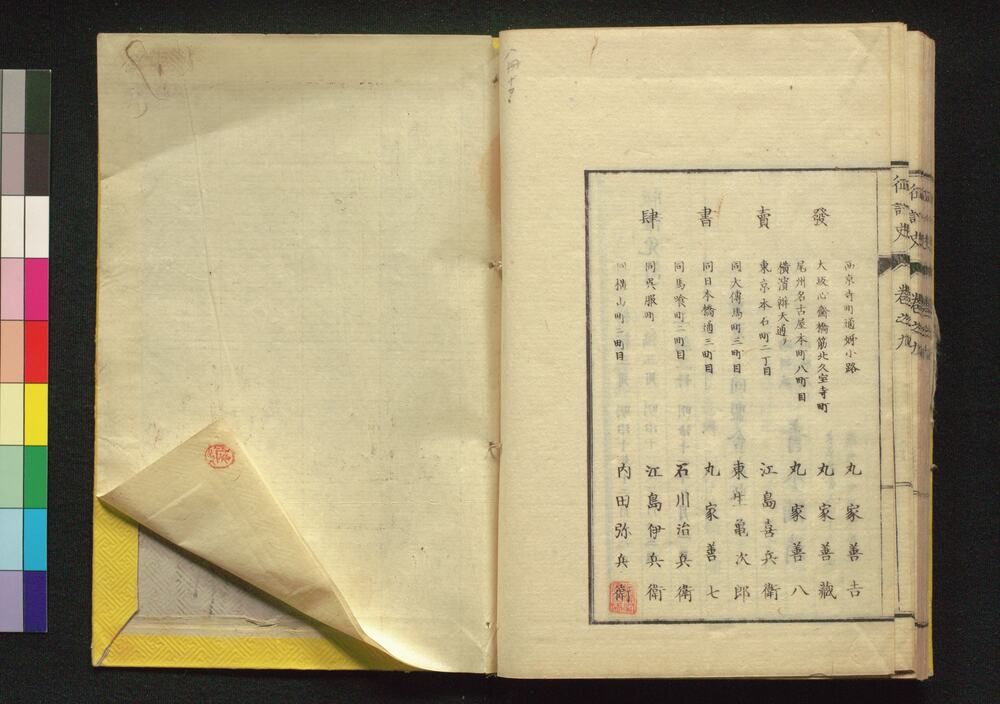 發賣書肆
西京寺町通姉小路 丸家善吉
大坂心齋橋筋北久宝寺町 丸家善藏
尾州名古屋本町八町目 丸家善八
橫濱辨天通
東京本石町二丁目 江島喜兵衛
同大傳馬町三町目 東生亀次郎
同日本橋通三町目 丸家善七
同馬喰町二町目 石川治兵衛
同呉服町 江島伊兵衛
同橫山町三町目 内田弥兵衛
八冊十